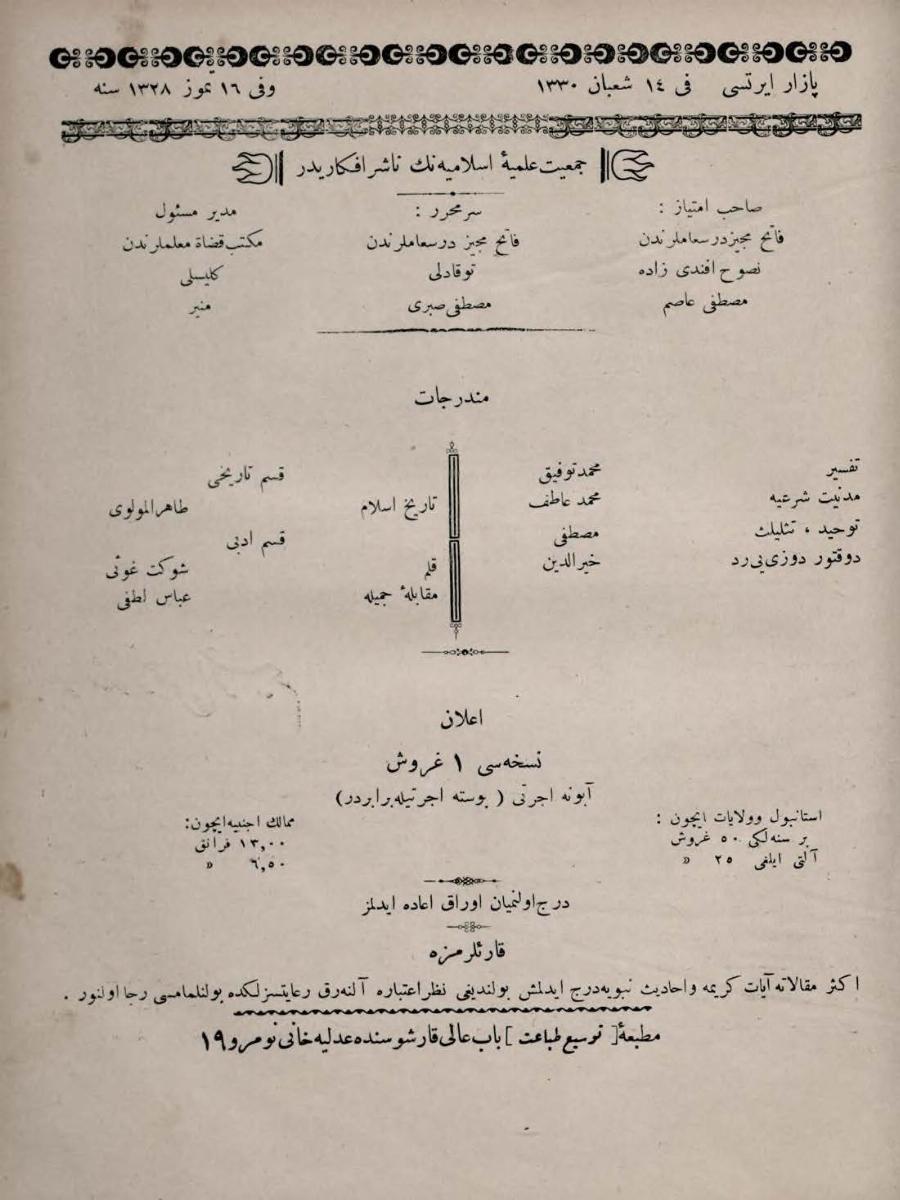 پازار ايرتسى فى ١٤ شعبان ١٣٣٠ وفى ١٦ تموز ١٣٢٨ سنه
جمعيت علميۀ اسلاميه‌نك ناشر افكاريدر
صاحب امتياز :
فاتح مجيز درسعاملرندن
نصوح افندى زاده
مصطفى عاصم
سرمحرر :
فاتح مجيز درسعاملرندن
توقادلى
مصطفى صبرى
مدير مسئول
مكتب قضاة معلملرندن
كليسلى
منير
مندرجات
تفسير محمد توفيق
مدنيت شرعيه محمد عاطف
توحيد ، تثليث مصطفى
دوقتور دوزى‌يى رد خيرالدين
قسم تاريخى
تاريخ اسلام طاهر المولوى
قسم ادبى
قلم شوكت غوثى
مقابلۀ جميله عباس لطفى
اعلان
نسخه‌سى ١ غروش
آبونه اجرتى ( پوسته اجرتيله برابردر)
استانبول وولايات ايچون :
بر سنه‌لكى ٥٠ غروش
آلتى ايلغى ٢٥ »
ممالك اجنبيه ايچون:
١٣,٠٠ فرانق
٦,٥٠ »
درج اولنميان اوراق اعاده ايدلمز
قارئلرمزه
اكثر مقالاته آيات كريمه واحاديث نبويه درج ايدلمش بولنديغى نظر اعتباره آلنه‌رق رعايتسزلكده بولنلمامسى رجا اولنور .
مطبعۀ [ توسيع طباعت ] باب عالى قارشوسنده عدليه خانى نومرو ١٩